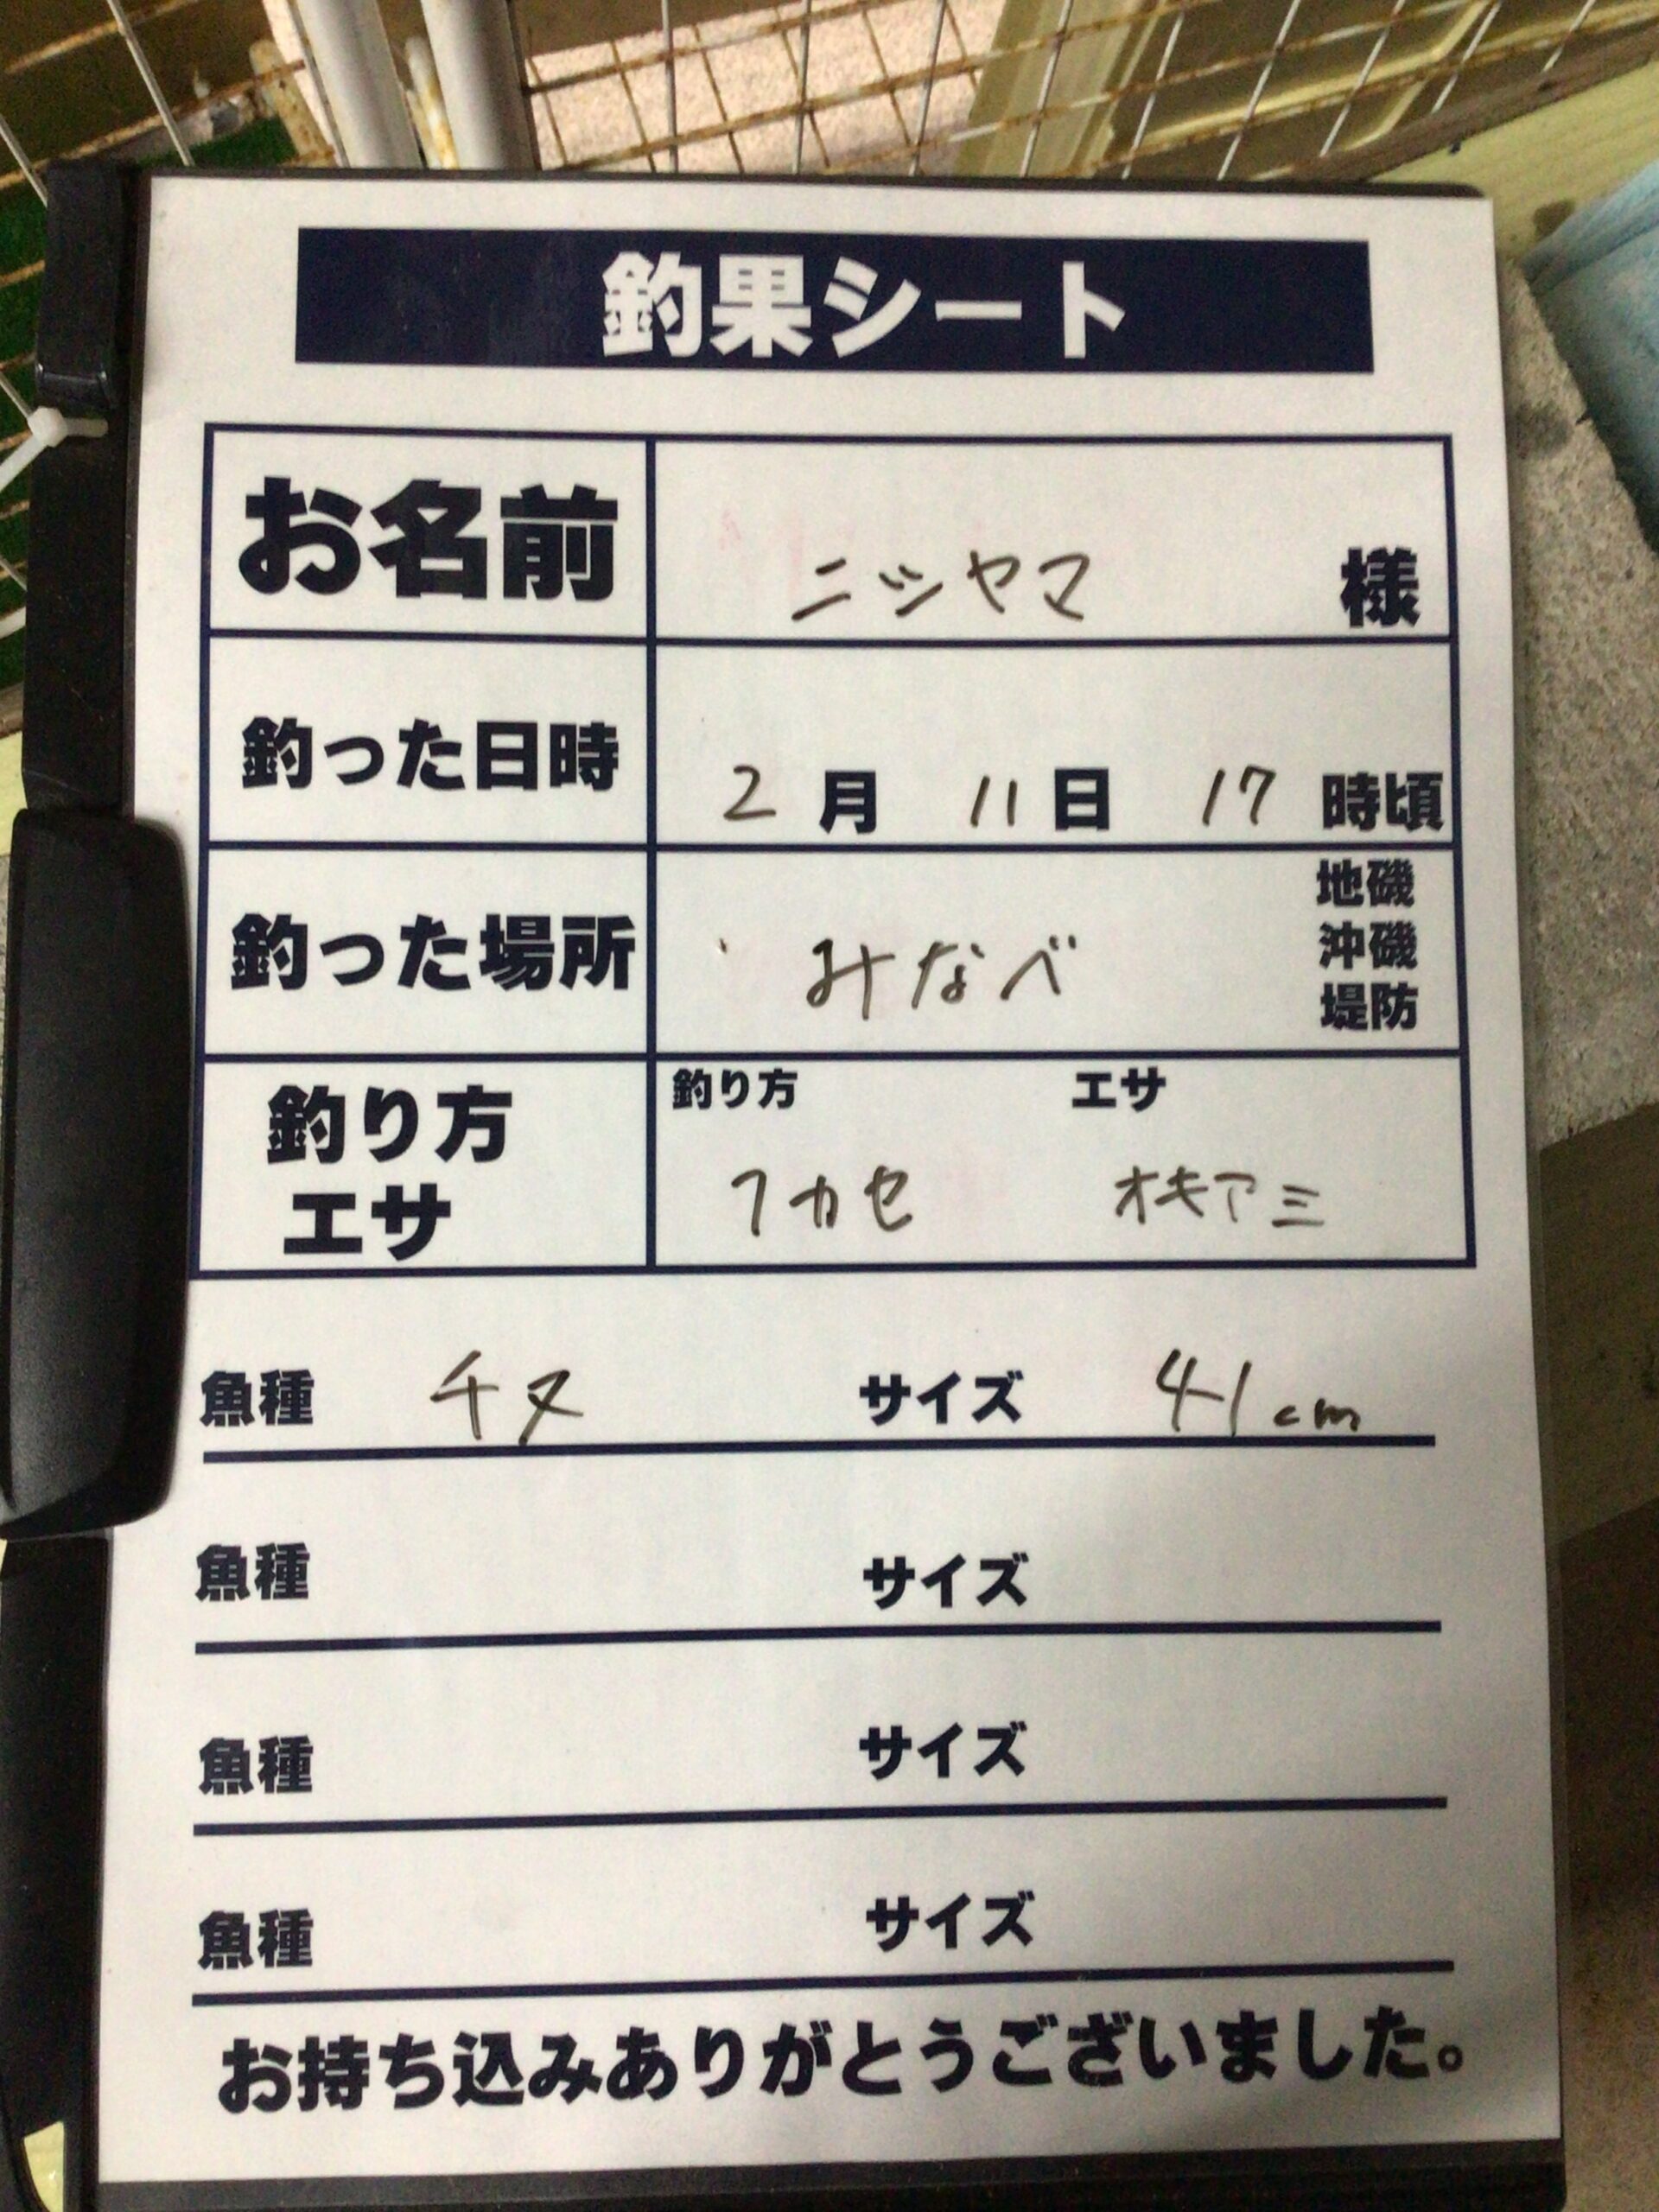 釣果シート
お名前 ニシヤマ 様
釣った日時 2月 11日 17時頃
釣った場所 みなべ 地磯
沖磯
堤防
釣り方 エサ
釣り方
エサ
フカセ オキアミ
魚種 チヌ サイズ 41cm
魚種 サイズ
魚種 サイズ
魚種 サイズ
お持ち込みありがとうございました。